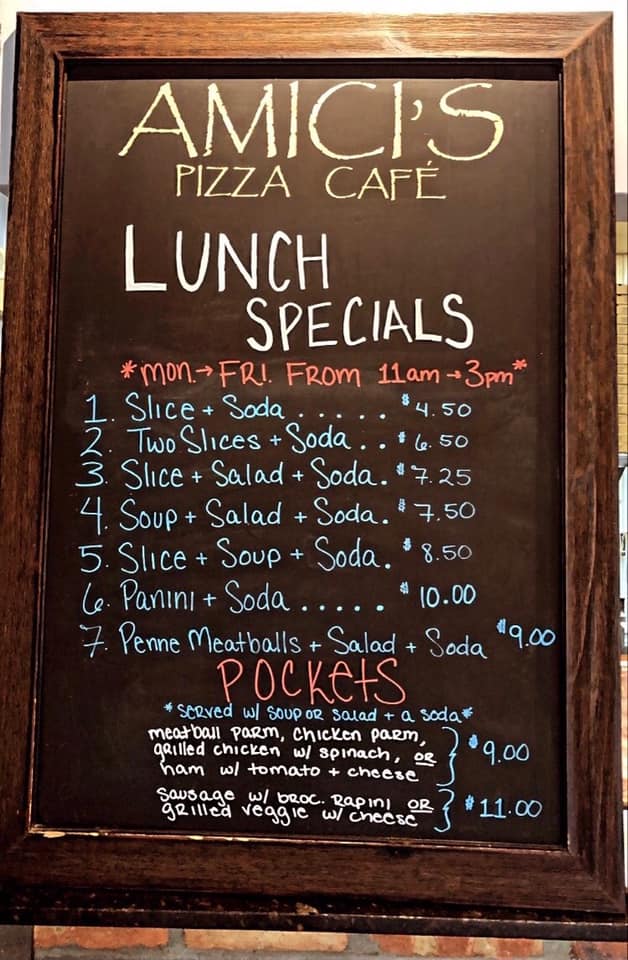 AMICI'S
PIZZA CAFÉ
LUNCH
SPECIALS
*MON.→FRI. FROM 11am→3pm*
1. Slice + Soda ..... $4.50
2. Two Slices + Soda .. $6.50
3. Slice + Salad + Soda. $7.25
4. Soup + Salad + Soda. $7.50
5. Slice + Soup + Soda. $8.50
6. Panini + Soda ..... $10.00
7. Penne Meatballs + Salad + Soda $9.00
POCKETS
*SERVED W/ SOUP OR Salad + a soda*
meatball PARM, CHICKEN PARM,
grilled chicken w/ spinach, OR
ham w/ tomato + cheese } $9.00
Sausage w/ BROC. RAPINI OR
grilled veggie w/ cheese } $11.00